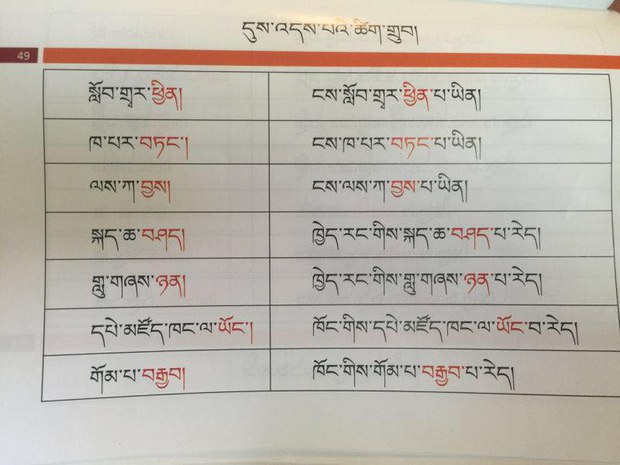 དུས་འདས་པའི་ཚིག་གྲུབ།
49
སློབ་གྲྭར་ཕྱིན། ངས་སློབ་གྲྭར་ཕྱིན་པ་ཡིན།
ཁ་པར་བཏང་། ངས་ཁ་པར་བཏང་པ་ཡིན།
ལས་ཀ་བྱས། ངས་ལས་ཀ་བྱས་པ་ཡིན།
སྐད་ཆ་བཤད། ཁྱེད་རང་གིས་སྐད་ཆ་བཤད་པ་རེད།
གླུ་གཞས་ཉན། ཁྱེད་རང་གིས་གླུ་གཞས་ཉན་པ་རེད།
དཔེ་མཛོད་ཁང་ལ་ཡོང་། ཁོང་གིས་དཔེ་མཛོད་ཁང་ལ་ཡོང་བ་རེད།
གོམ་པ་བརྒྱབ། ཁོང་གིས་གོམ་པ་བརྒྱབ་པ་རེད།